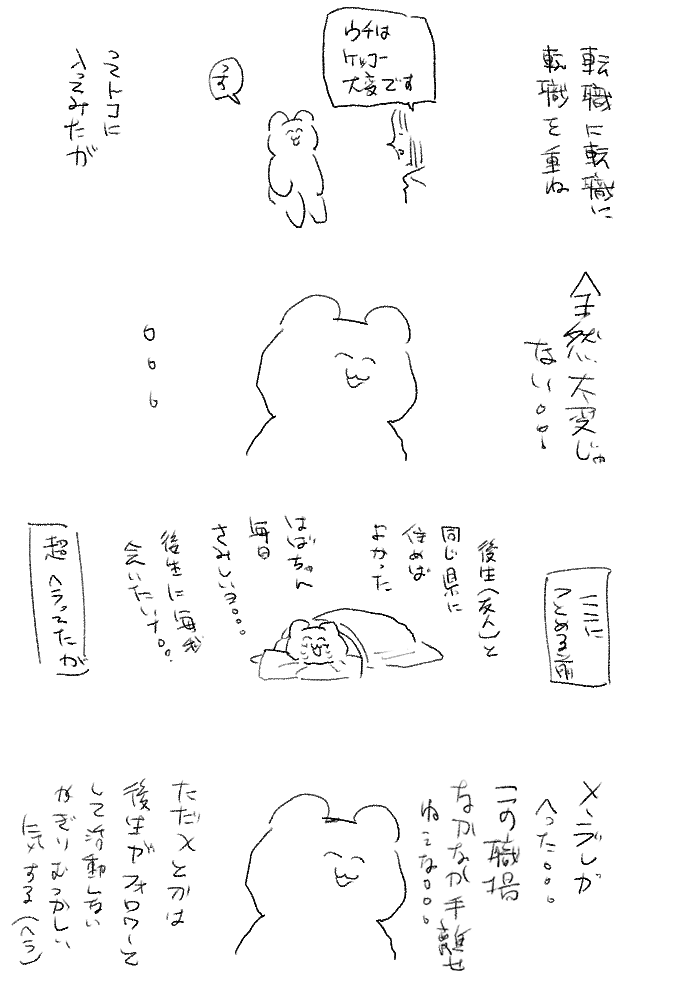 転職に転職に
転職を重ね
ウチは
ケッコー
大変です
っす
ってトコに
入ってみたが
全然大変じゃ
ない。。。
。。。
ここに
つとめる前
後生(友人)と
同じ県に
住めば
よかった
ばばちゃん
毎日
さみしいヨ。。。
後生に毎秒
会いたいナ。。
超ヘラってたが
メンブレが
へった。。。
この職場
なかなか手離せ
ねェな。。。
ただXとかは
後生がフォロワーと
して活動しない
かぎりむつかしい
気する(ヘラ)